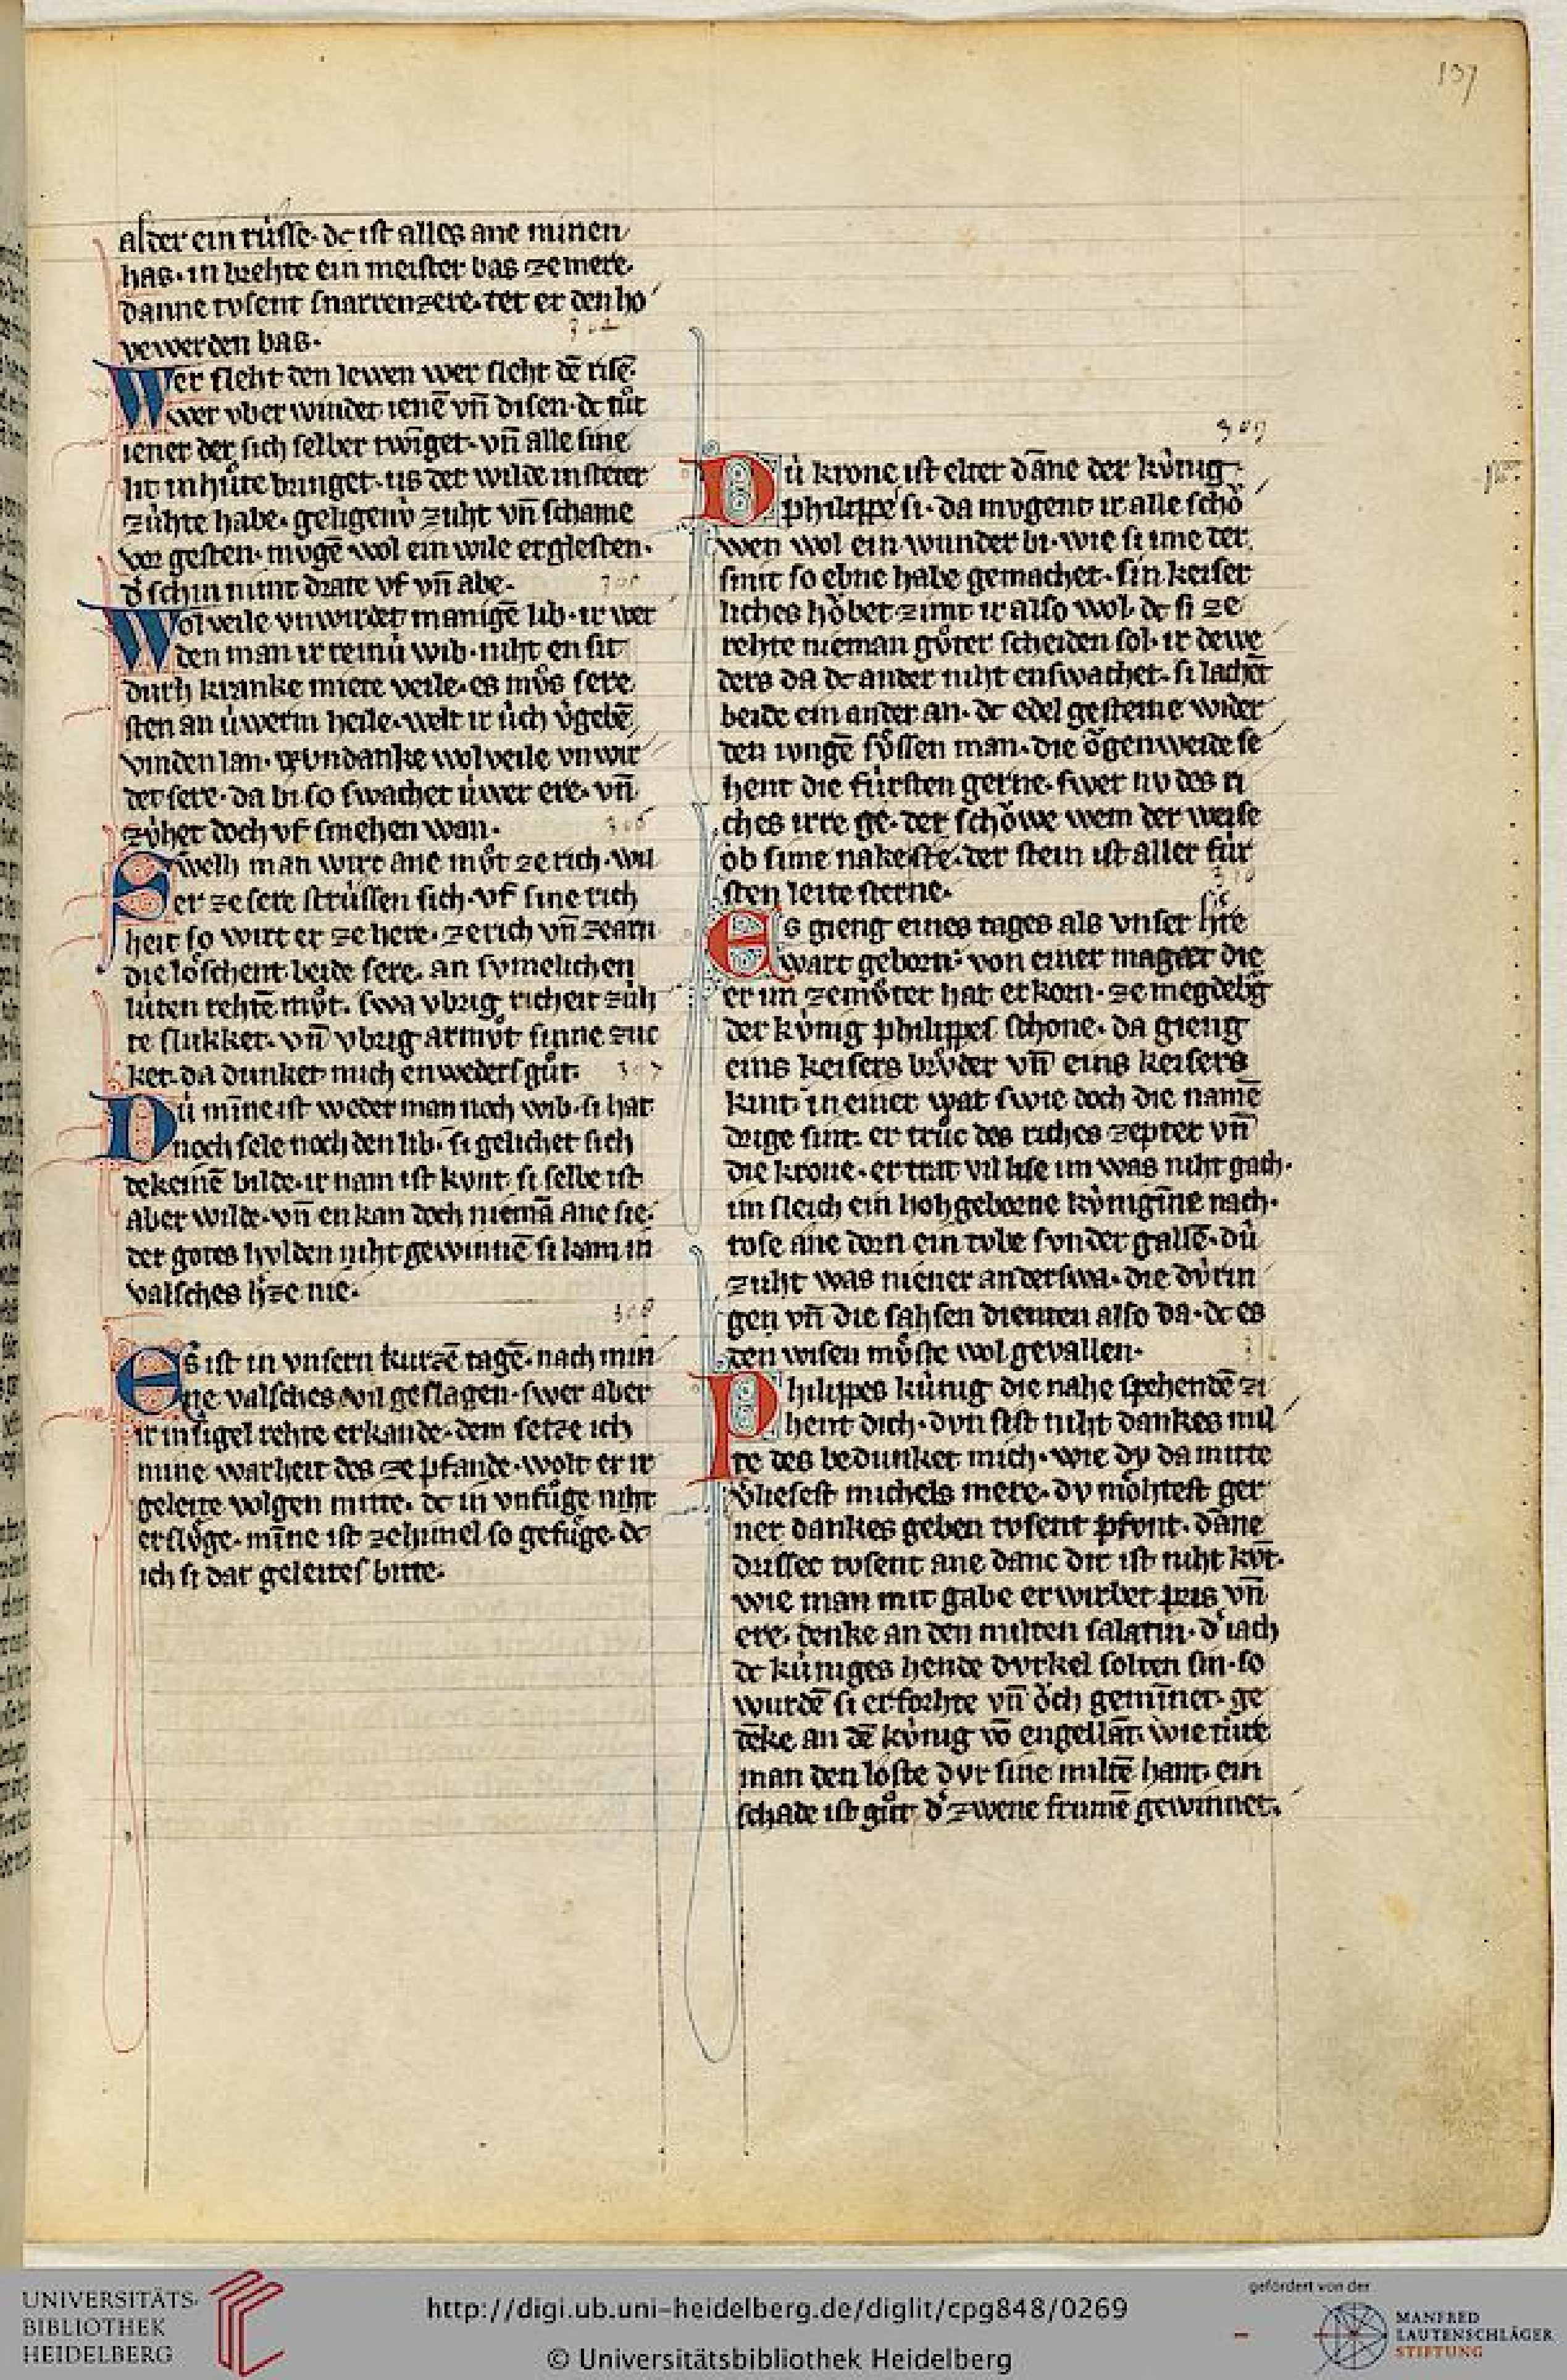 137
alder ein rùsse. dc ist alles ane minen
has. in brehte ein meister bas ze mere.
danne tvsent snarrenzere. tet er den ho
vewerden bas.
Wer sleht den lewen wer sleht dē risē.
wer vber windet ienē vn̄ disen. dc tuͦt
iener der sich selber twīget. vn̄ alle sine
lit in huͦte bringet. us der wilde in steter
zùhte habe. geligenù zuht vn̄ schame
vor gesten. mvgē wol ein wile erglesten.
dˀ schin nimt drate vf vn̄ abe.
Wolveile vnwirdet manigē lib. ir wer
den man ir reinù wib. niht en sit
durh kranke miete veile. es mvͦs sere
sten an ùwerm heile. welt ir ùch vˀgebē
vinden lan. zvndanke wolveile vnwir
det sere. da bi so swachet ùwer ere. vn̄
zùhet doch vf smehen wan.
306
Swelh man wirt ane mvͦt ze rich. wil
er ze sere strùssen sich. vf sine rich
heit so wirt er ze here. ze rich vn̄ ze arn
die loͤschent beide sere. an svmelichen
lùten rehtē mvͦt. swa vbrig richeit zùh
te slukket. vn̄ vbrig armvͦt sinne zuc
ket. da dunket mich enweders guͦt.
307
Dù mīne ist weder man noch wib. si hat
noch sele noch den lib. si gelichet sich
dekeinē bilde. ir nam ist kvnt. si selbe ist
aber wilde. vn̄ en kan doch niemā ane sie.
der gotes hvlden niht gewinnē si kam in
valsches hˀze nie.
308
Es ist in vnsern kurzē tagē. nach min
ne valsches vil geslagen. swer aber
ir insigel rehte erkande. dem setze ich
mine warheit des ze pfande. wolt er ir
geleite volgen mitte. dc in vnfuͦge niht
erslvͦge. mīne ist ze himel so gefuͤge. dc
ich si dar geleites bitte.
309
Dù krone ist elter dāne der kùnig
philippe si. da mvgent ir alle schoͦ
wen wol ein wunder bi. wie si ime der
smit so ebne habe gemachet. sin keiser
liches hoͮbet zimt ir also wol. dc si ze
rehte nieman gvͦter scheiden sol. ir dewe
ders da dc ander niht enswachet. si lachēt
beide ein ander an. dc edel gesteine wider
den ivngē svͤssen man. die oͮgenweide se
hent die fùrsten gerne. swer nv des ri
ches irre ge. der schoͮwe wem der weise
ob sime nake ste. der stein ist aller fùr
sten leite sterne.
310
Es gieng eines tages als vnser hˀre
wart geborn. von einer maget die
er im ze mvͦter hat erkorn. ze megdebˀg
der kùnig philippes schone. da gieng
eins keisers brvͦder vn̄ eins keisers
kint. in einer wat swie doch die namē
drige sint. er truͦc des riches zepter vn̄
die krone. er trat vil lise im was niht gach.
im sleich ein hoh geborne kùnigīne nach.
rose ane dorn ein tvbe svnder gallē. dù
zuht was niener anderswa. die dùrin
gen vn̄ die sahsen dienten also da. dc es
den wisen mvͤste wol gevallen.
Philippes kùnig die nahe spehendē zi
hent dich. dvn sist niht dankes mil
te des bedunket mich. wie dv da mitte
vˀliesest michels mere. dv moͤhtest ger
ner dankes geben tvsent pfvnt. dāne
drissec tvsent ane danc dir ist niht kvͦt.
wie man mit gabe erwirbet pris vn̄
ere. denke an den milten salatin. dˀ iach
dc kùniges hende dvrkel solten sin. so
wurdē si erforhte vn̄ oͮch gemīnet. ge
dēke an dē kùnig vō engellāt. wie tùre
man den loste dvr sine miltē hant. ein
schade ist guͦt. dˀ zwene frumē gewinnet.
UNIVERSITÄTS-
BIBLIOTHEK
HEIDELBERG
http://digi.ub.uni-heidelberg.de/diglit/cpg848/0269
© Universitätsbibliothek Heidelberg
gefördert von der
MANFRED
LAUTENSCHLÄGER
STIFTUNG